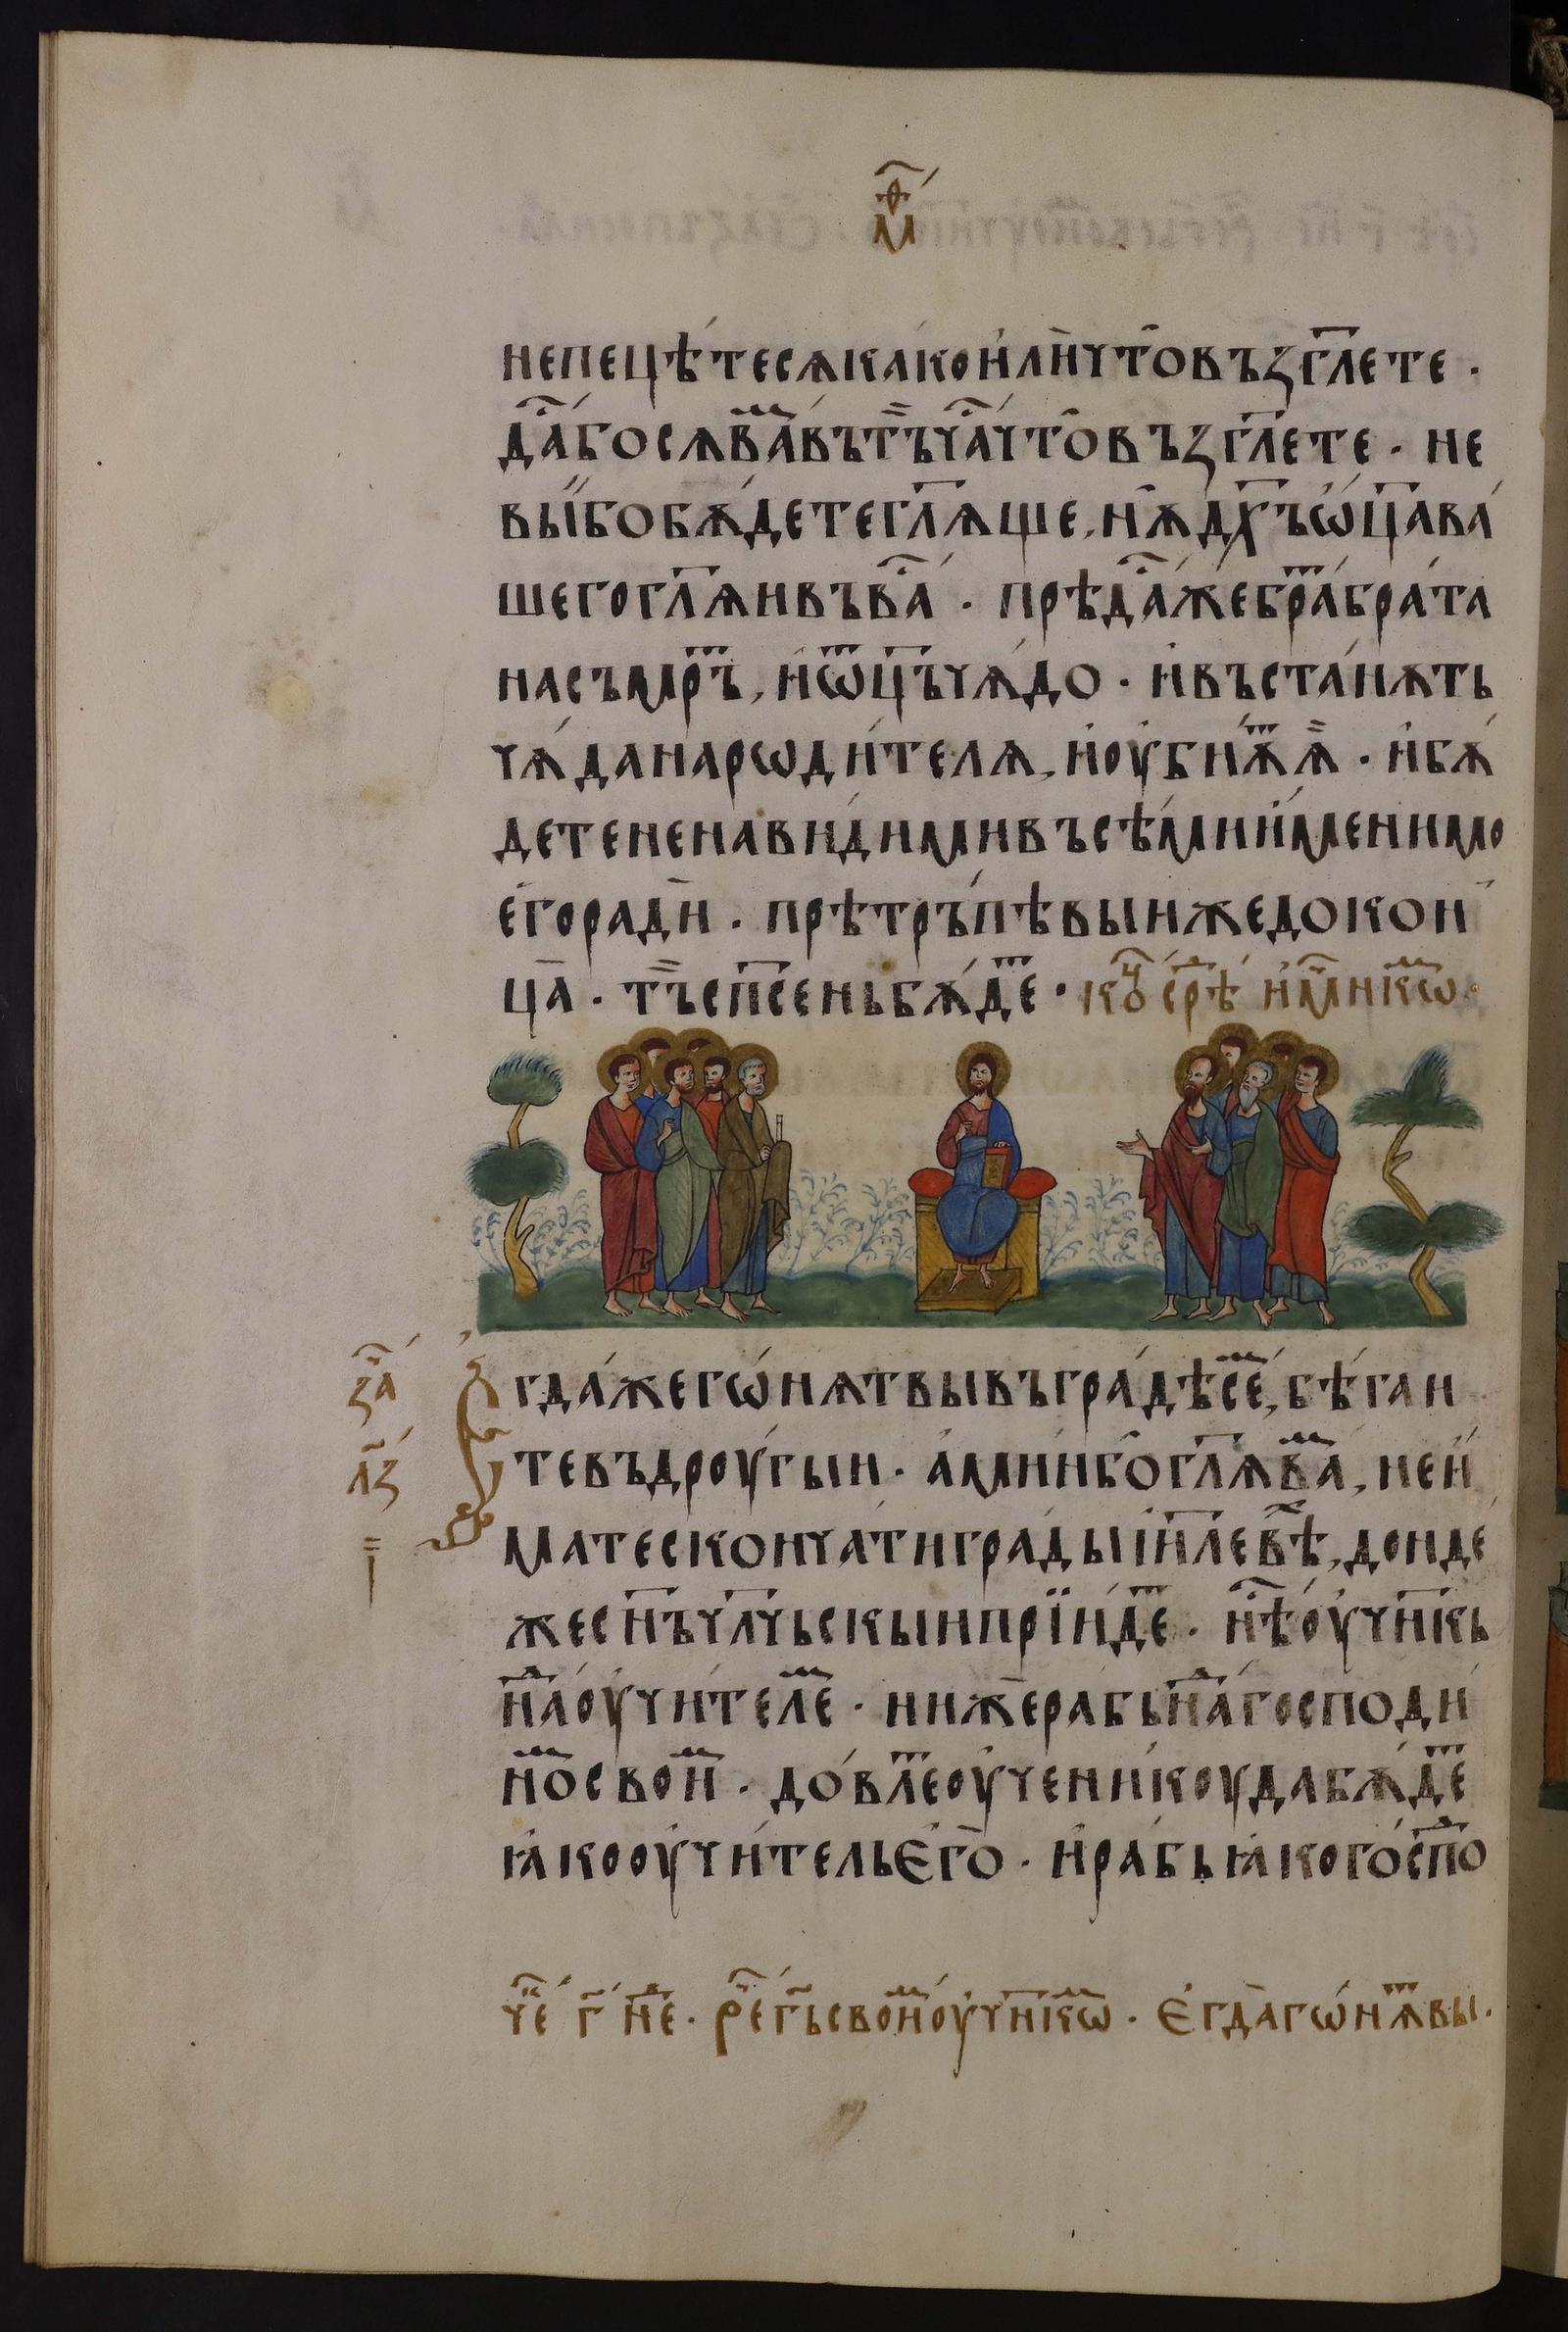 мѳ
непецѣ́тесѧка́коилѝчто̑възгл҃ете ·
да́босѧва́вътъ̏ча́что̑възгл҃ете · не
вы̋бобѫ́детегл҃ѫще, нѫ̑дх҃ъѡ҆ц҃а̀ва́
шегогл҃ѫивъва́ · прѣда́жебра́бра́та
насъмр҃ъ, и҆ѿц҃ъчѧ́до · и҆въста́нѫть
чѧ́данарѡди́телѧ, и҆оу҆би́ѫѫ̏ · и҆бѫ́
детененави́димивъсѣ́мии҆́менимо
е҆горадѝ · прѣтръ́пѣвыижедокон
ца̀ · тъ̏сп҃сеньбѫ́де · ко срѣ́ и҆мникѡ
гда́жегѡ́нѫтвывъгра́дѣсе, бѣ́гаи
тевъдроу́гыи · а҆ми́нбо̑гл҃ѫва, неи҆́
матесконча́тигра́дыі҆ил҃евѣ, донде́
жесн҃ъчл҃чьскыиприі́де · нѣ́оу҆чн҃кь
на́оу҆чи́теле · нижѐра́бьна́господи́
носвои · до́влеоу҆чени́коудабѫ́де
ꙗ҆́кооу҆чи́тельего̀ · и҆ра́бьꙗ҆́кого́спо
за
лз
і
че́ г҃ не · ре́г҃ьсвоиоу҆чн҃кѡ · Е҆гда̀гѡ́нѫвы ·